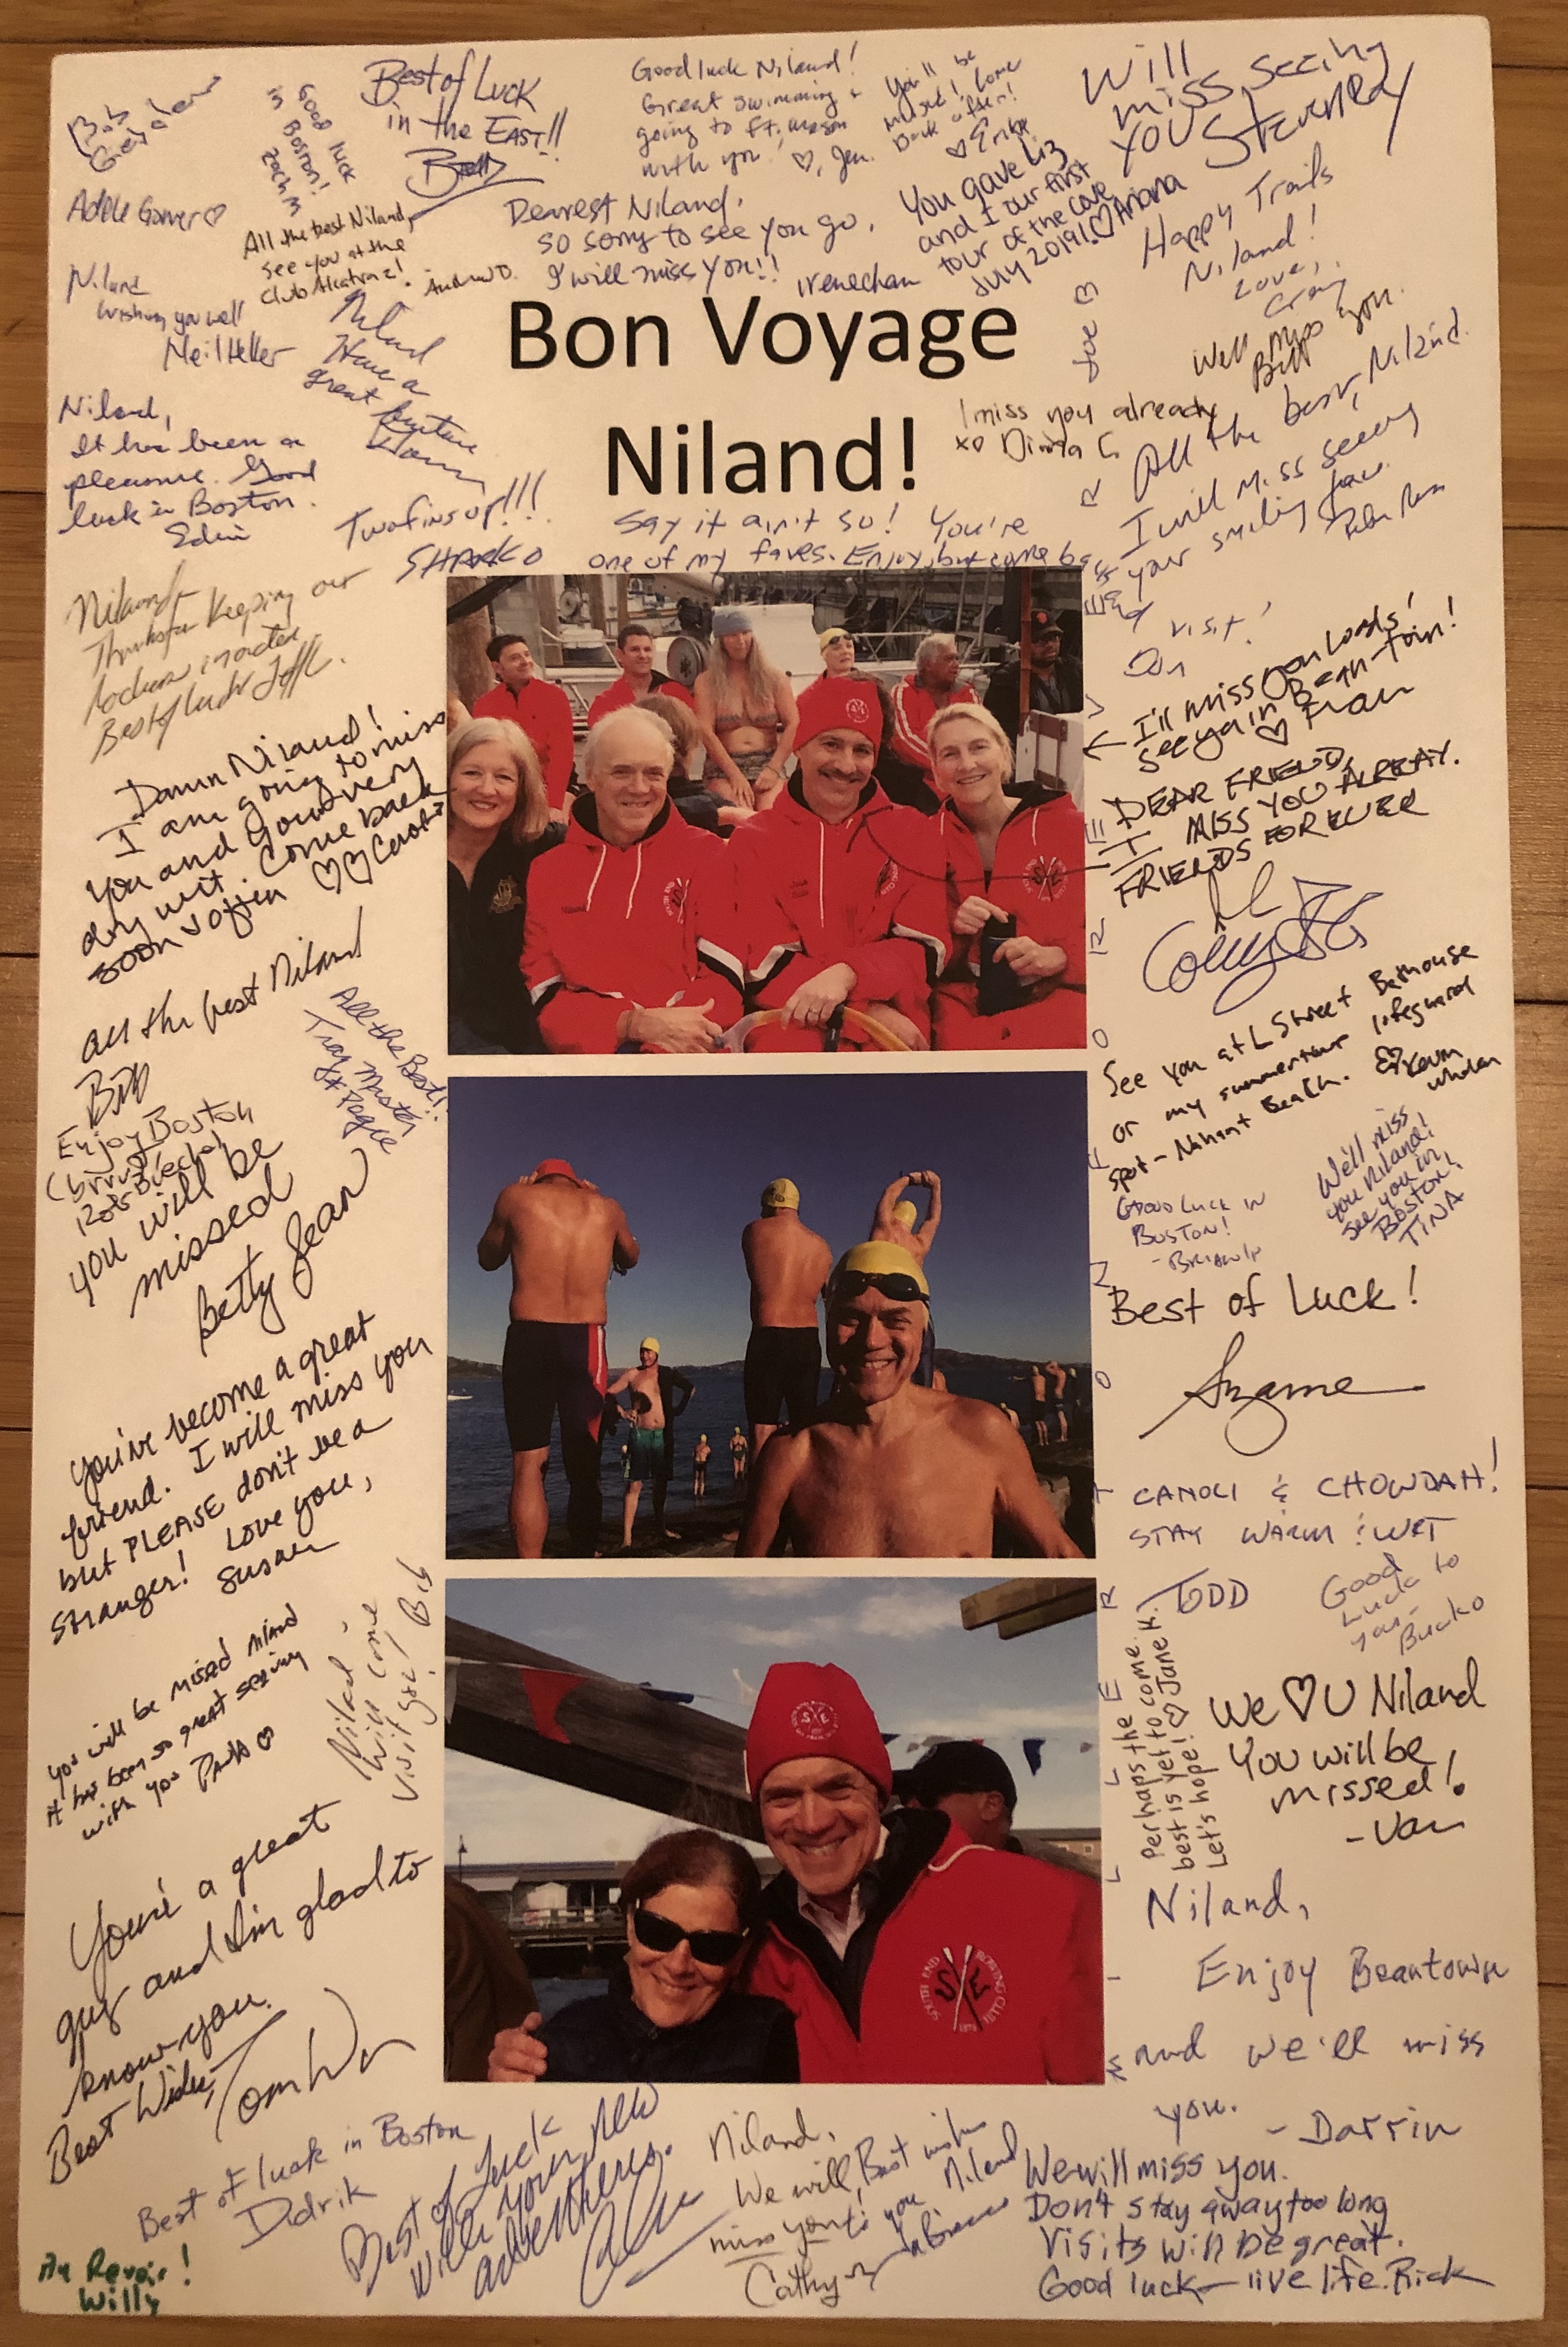 Bob
Good luck
in Boston!
Zach M
Best of Luck
in the EAST!!
Brett
Good luck Niland!
Great swimming &
going to Ft. Mason
with you!
♡, Jen.
You'll be
missed! Come
back often!
♡ Erika
Will
miss seeing
you Steven Ray
Adele Gower ♡
All the best Niland,
See you at the
Club Alcatraz!
Andrew D.
Dearest Niland,
so sorry to see you go.
I will miss you!! Irenechan
You gave Liz
and I our first
tour of the cove
July 2019! ♡ Ariana
Happy Trails
Niland!
Love,
Craig
Niland
Wishing you well
Neil Heller
Niland
Have a
great future
Bon Voyage
Niland!
Joe ♡
We'll miss you.
Bill
I miss you already
xo Dinta C.
All the best, Niland.
Niland,
It has been a
pleasure. Good
luck in Boston.
Edin
Two fins up!!!
SHARKO
Say it ain't so! You're
one of my faves. Enjoy, but come back
and visit!
I will miss seeing
your smiling face.
Niland
Thanks for keeping our
Best of luck Jeff
I'll miss you loads!
See ya in Bean-Town!
♡ Fran
Damn Niland!
I am going to miss
you and your very
dry wit. Come back
soon & often ♡♡ Carol
DEAR FRIEND,
I MISS YOU ALREAY.
FRIENDS FOREVER
all the best Niland
Bib
All the Best!
See you at L Street Bathouse
or my summertime lifeguard
spot - Nahant Beach. ♡ Kevin
Whalen
Enjoy Boston
(brrr!)
you will be
missed
Betty Jean
GOOD LUCK IN
BOSTON!
- BRIAN IP
We'll miss
you Niland!
See you in
Boston!
TINA
Best of Luck!
Suzanne
You've become a great
friend. I will miss you
but PLEASE don't be a
stranger! Love you,
Susan
CANOLI & CHOWDAH!
STAY WARM & WET
TODD
Good
Luck to
you -
Bucko
you will be missed Niland
it has been so great seeing
with you Paula ♡
Niland -
Will come
visit you! Bib
Perhaps the
best is yet to come.
Let's hope! ♡ Jane H.
We ♡ U Niland
You will be
missed!
- Van
You're a great
guy and I'm glad to
know you.
Best Wishes
Tom
SOUTH END ROWING CLUB
S E
1873
Niland,
Enjoy Beantown
and we'll miss
you.
- Darrin
Best of luck in Boston
Didrik
Best of Luck
with your new
adventures.
Niland,
We will
miss you!
Cathy
Best wishes
to you Niland
We will miss you.
Don't stay away too long
Visits will be great.
Good luck - live life. Rick
Au Revoir!
Willy